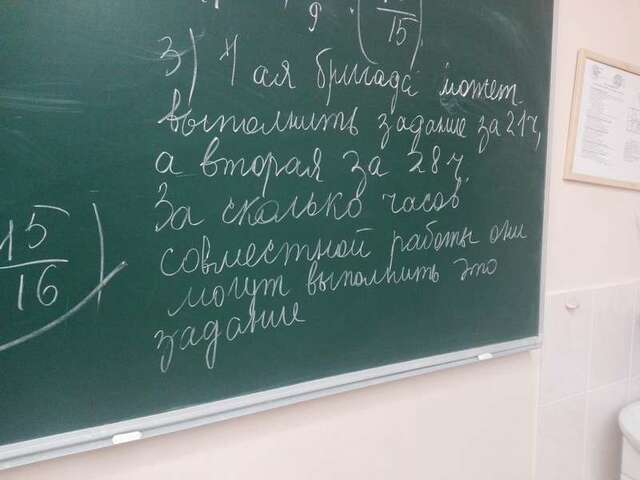 9
15
3) 1 ая бригада может
выполнить задание за 21ч,
а вторая за 28 ч.
За сколько часов
совместной работы они
могут выполнить это
задание
15
16